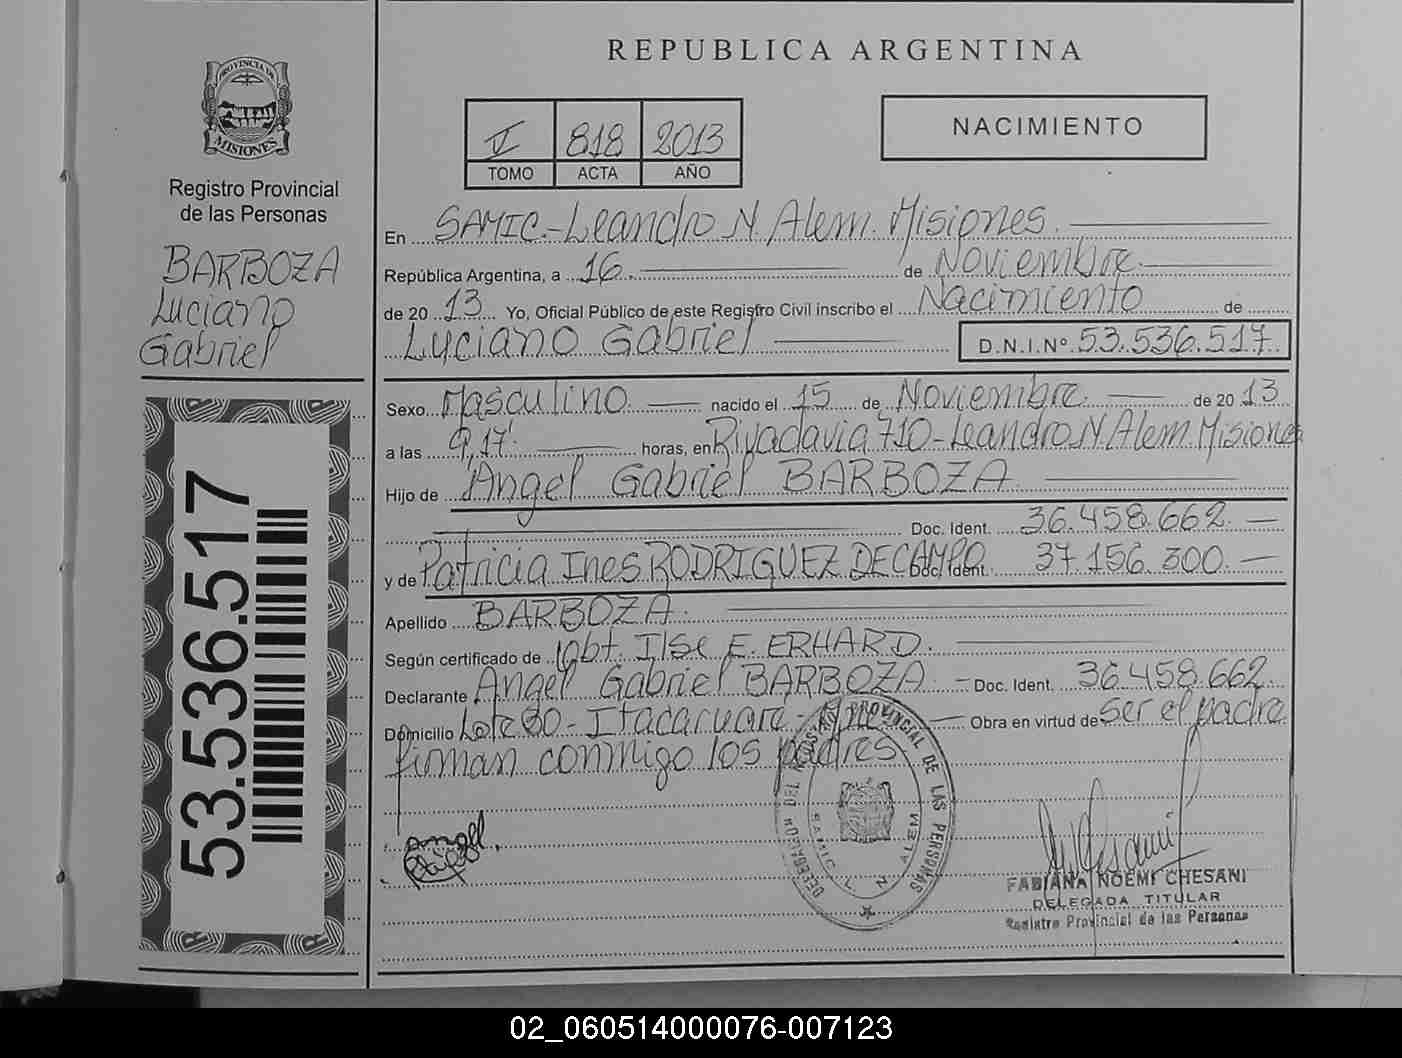 REPUBLICA ARGENTINA
PROVINCIA DE
MISIONES
Registro Provincial
de las Personas
BARBOZA
Luciano
Gabriel
53.536.517
V 818 2013
TOMO ACTA AÑO
NACIMIENTO
En SAMIC.-Leandro N. Alem. Misiones
República Argentina, a 16 de Noviembre
de 2013 Yo, Oficial Público de este Registro Civil inscribo el Nacimiento de
Luciano Gabriel D.N.I.Nº 53.536.517
Sexo Masculino nacido el 15 de Noviembre de 2013
a las 9,17' horas, en Rivadavia 710-Leandro N Alem. Misiones
Hijo de Angel Gabriel BARBOZA
Doc. Ident. 36.458.662
y de Patricia Ines RODRIGUEZ DECAMPO Doc. Ident. 37.156.300.-
Apellido BARBOZA
Según certificado de Obt. Ilse E. ERHARD.
Declarante Angel Gabriel BARBOZA - Doc. Ident. 36.458.662
Domicilio Lote 30 - Itacaruare - Obra en virtud de ser el padre
firman conmigo los padres
Angel
DELEGACION DEL REGISTRO PROVINCIAL DE LAS PERSONAS
SAMIC L. N. ALEM
FABIANA NOEMI CHESANI
DELEGADA TITULAR
Registro Provincial de las Personas
02_060514000076-007123